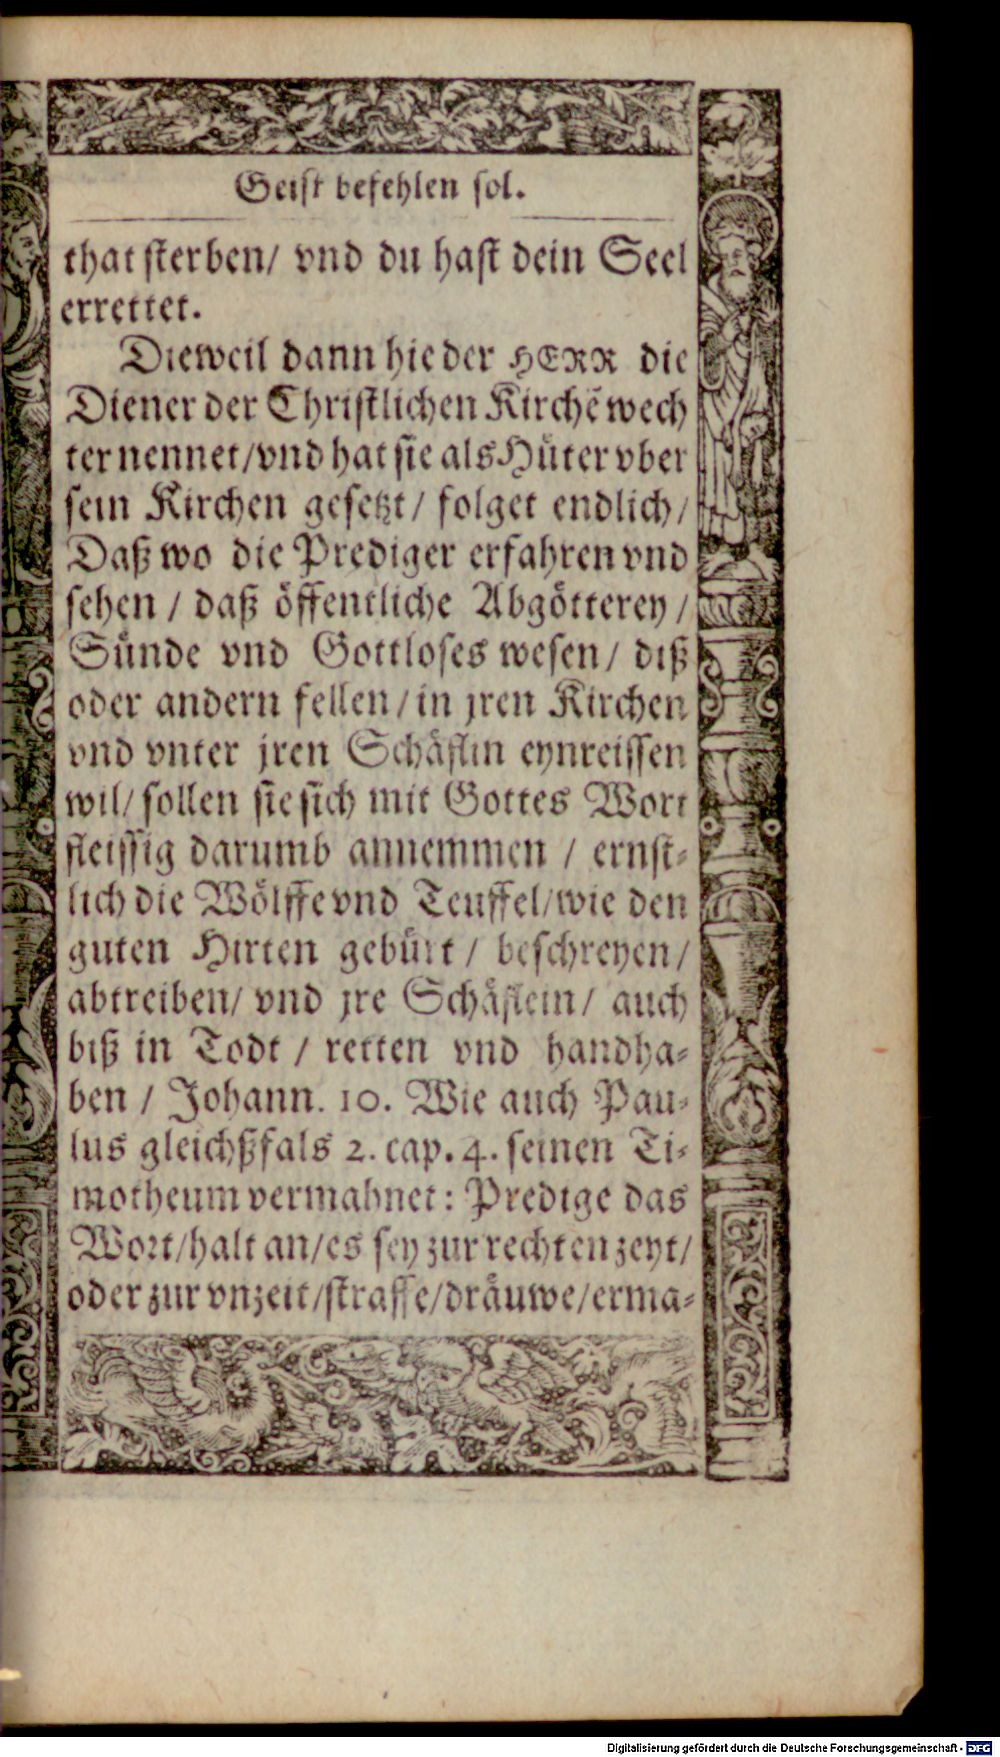 Geist befehlen sol.
that sterben/ vnd du hast dein Seel
errettet.
Dieweil dann hie der HERR die
Diener der Christlichen Kirchẽ wech
ter nennet/vnd hat sie als Hüter vber
sein Kirchen gesetzt/ folget endlich/
Daß wo die Prediger erfahren vnd
sehen / daß öffentliche Abgötterey /
Sünde vnd Gottloses wesen/ diß
oder andern fellen/in jren Kirchen
vnd vnter jren Schäflin eynreissen
wil/ sollen sie sich mit Gottes Wort
fleissig darumb annemmen / ernst-
lich die Wölffe vnd Teuffel/wie den
guten Hirten gebürt / beschreyen/
abtreiben/ vnd jre Schäflein/ auch
biß in Todt / retten vnd handha-
ben / Johann. 10. Wie auch Pau-
lus gleichßfals 2. cap. 4. seinen Ti-
motheum vermahnet: Predige das
Wort/halt an/es sey zur rechten zeyt/
oder zur vnzeit/straffe/dräuwe/erma-
Digitalisierung gefördert durch die Deutsche Forschungsgemeinschaft - DFG